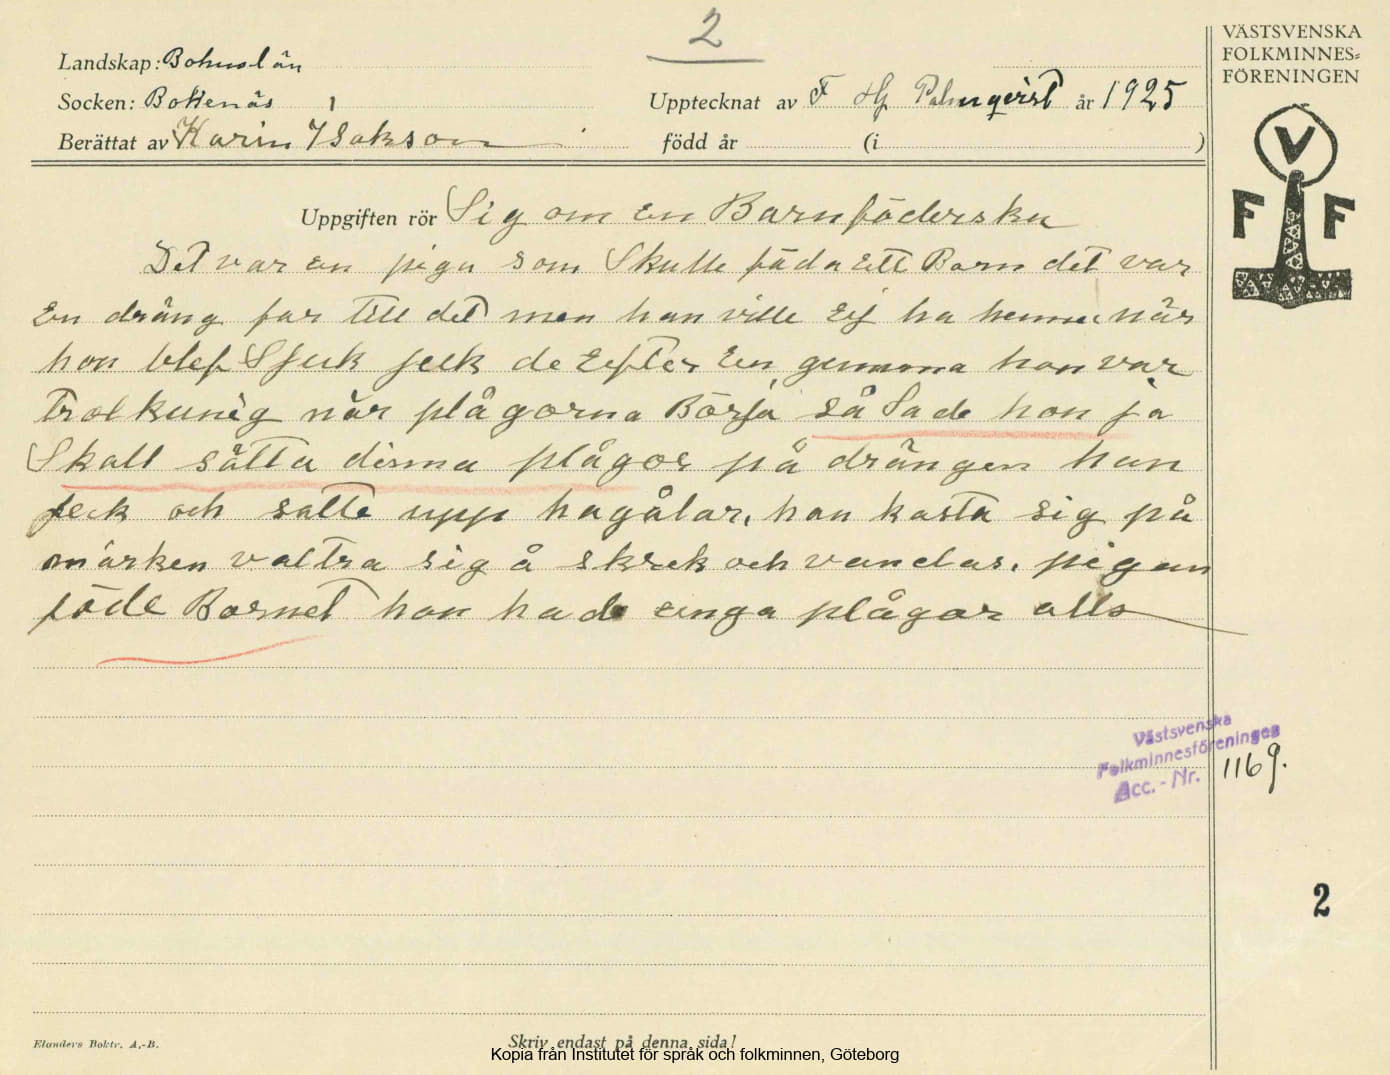 2
VÄSTSVENSKA
FOLKMINNES=
FÖRENINGEN
Landskap: Bohuslän
Socken: Bokenäs 1
Upptecknat av F Hj Palmqvist år 1925
Berättat av Karin Isakson
född år (i )
V
F F
Uppgiften rör Sig om en Barnföderska
Det var en piga som Skulle föda Ett Barn det var
En dräng far till det men han ville Eij ha henne när
hon blef Sjuk feck de Efter En gumma hon var
Trolkunig när plågorna Börja så Sade hon ja
Skall sätta dinna plågor på drängen han
feck och satte upp hagålar, han kasta sig på
marken valtra sig å skrek och vandas. pigan
föde Barnet hon hade einga plågor alls
Västsvenska
Folkminnesföreningen
Acc.-Nr. 1169.
2
Elanders Boktr. A.-B.
Skriv endast på denna sida!
Kopia från Institutet för språk och folkminnen, Göteborg